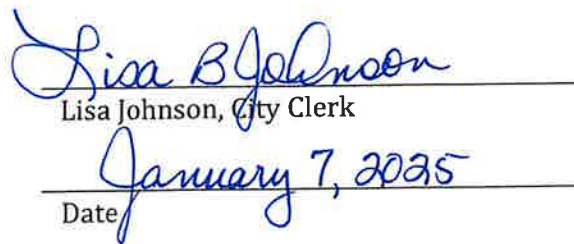 Lisa B Johnson
Lisa Johnson, City Clerk
January 7, 2025
Date